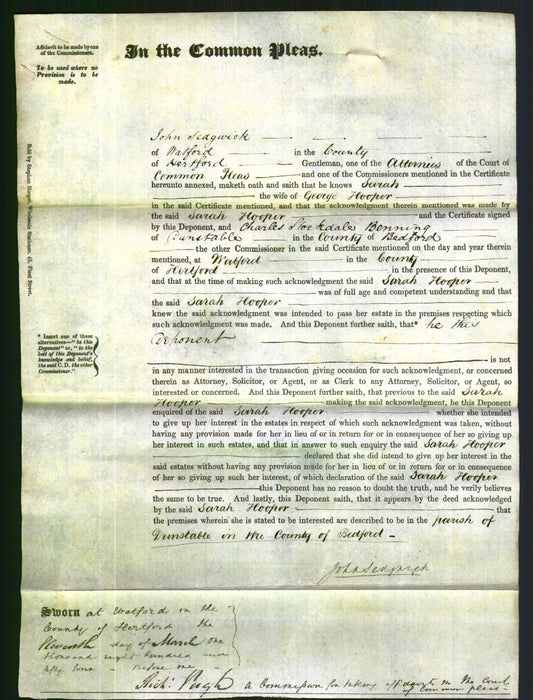 In the Common Pleas.
Affidavit to be made by one
of the Commissioners.
To be used where no
Provision is to be
made.
Sold by Stephen Hooper, Wholesale Stationer, 45, Fleet Street.
John Sedgwick
of Watford in the County
of Hertford Gentleman, one of the Attornies of the Court of
Common Pleas and one of the Commissioners mentioned in the Certificate
hereunto annexed, maketh oath and saith that he knows Sarah
the wife of George Hooper
in the said Certificate mentioned, and that the acknowledgment therein mentioned was made by
the said Sarah Hooper and the Certificate signed
by this Deponent, and Charles Stockdale Benning
of Dunstable in the County of Bedford
the other Commissioner in the said Certificate mentioned on the day and year therein
mentioned, at Watford in the County
of Hertford in the presence of this Deponent,
and that at the time of making such acknowledgment the said Sarah Hooper
was of full age and competent understanding and that
the said Sarah Hooper
knew the said acknowledgment was intended to pass her estate in the premises respecting which
such acknowledgment was made. And this Deponent further saith, that* he this
Deponent
is not
* Insert one of these
alternatives—"he this
Deponent" or, "to the
best of this Deponent's
knowledge and belief,
the said C.D. the other
Commissioner."
in any manner interested in the transaction giving occasion for such acknowledgment, or concerned
therein as Attorney, Solicitor, or Agent, or as Clerk to any Attorney, Solicitor, or Agent, so
interested or concerned. And this Deponent further saith, that previous to the said Sarah
Hooper making the acknowledgment, he this Deponent
enquired of the said Sarah Hooper whether she intended
to give up her interest in the estates in respect of which such acknowledgment was taken, without
having any provision made for her in lieu of or in return for or in consequence of her so giving up
her interest in such estates, and that in answer to such enquiry the said Sarah Hooper
declared that she did intend to give up her interest in the
said estates without having any provision made for her in lieu of or in return for or in consequence
of her so giving up such her interest, of which declaration of the said Sarah Hooper
this Deponent has no reason to doubt the truth, and he verily believes
the same to be true. And lastly, this Deponent saith, that it appears by the deed acknowledged
by the said Sarah Hooper that
the premises wherein she is stated to be interested are described to be in the parish of
Dunstable in the County of Bedford
John Sedgwick
Sworn at Watford in the
County of Hertford the
Eleventh day of March one
thousand eight hundred and
fifty – Before me
Pugh a Commissioner for taking affidavits in the Court
of Common pleas